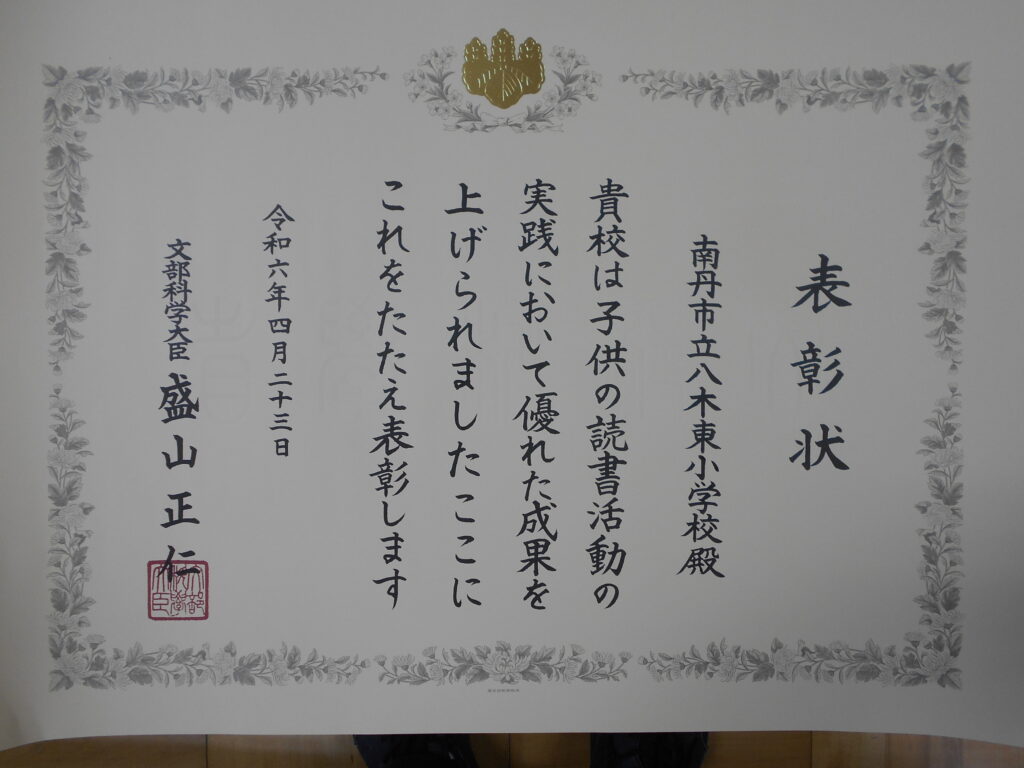 表彰状
南丹市立八木東小学校殿
貴校は子供の読書活動の
実践において優れた成果を
上げられましたここに
これをたたえ表彰します
令和六年四月二十三日
文部科学大臣 盛山正仁